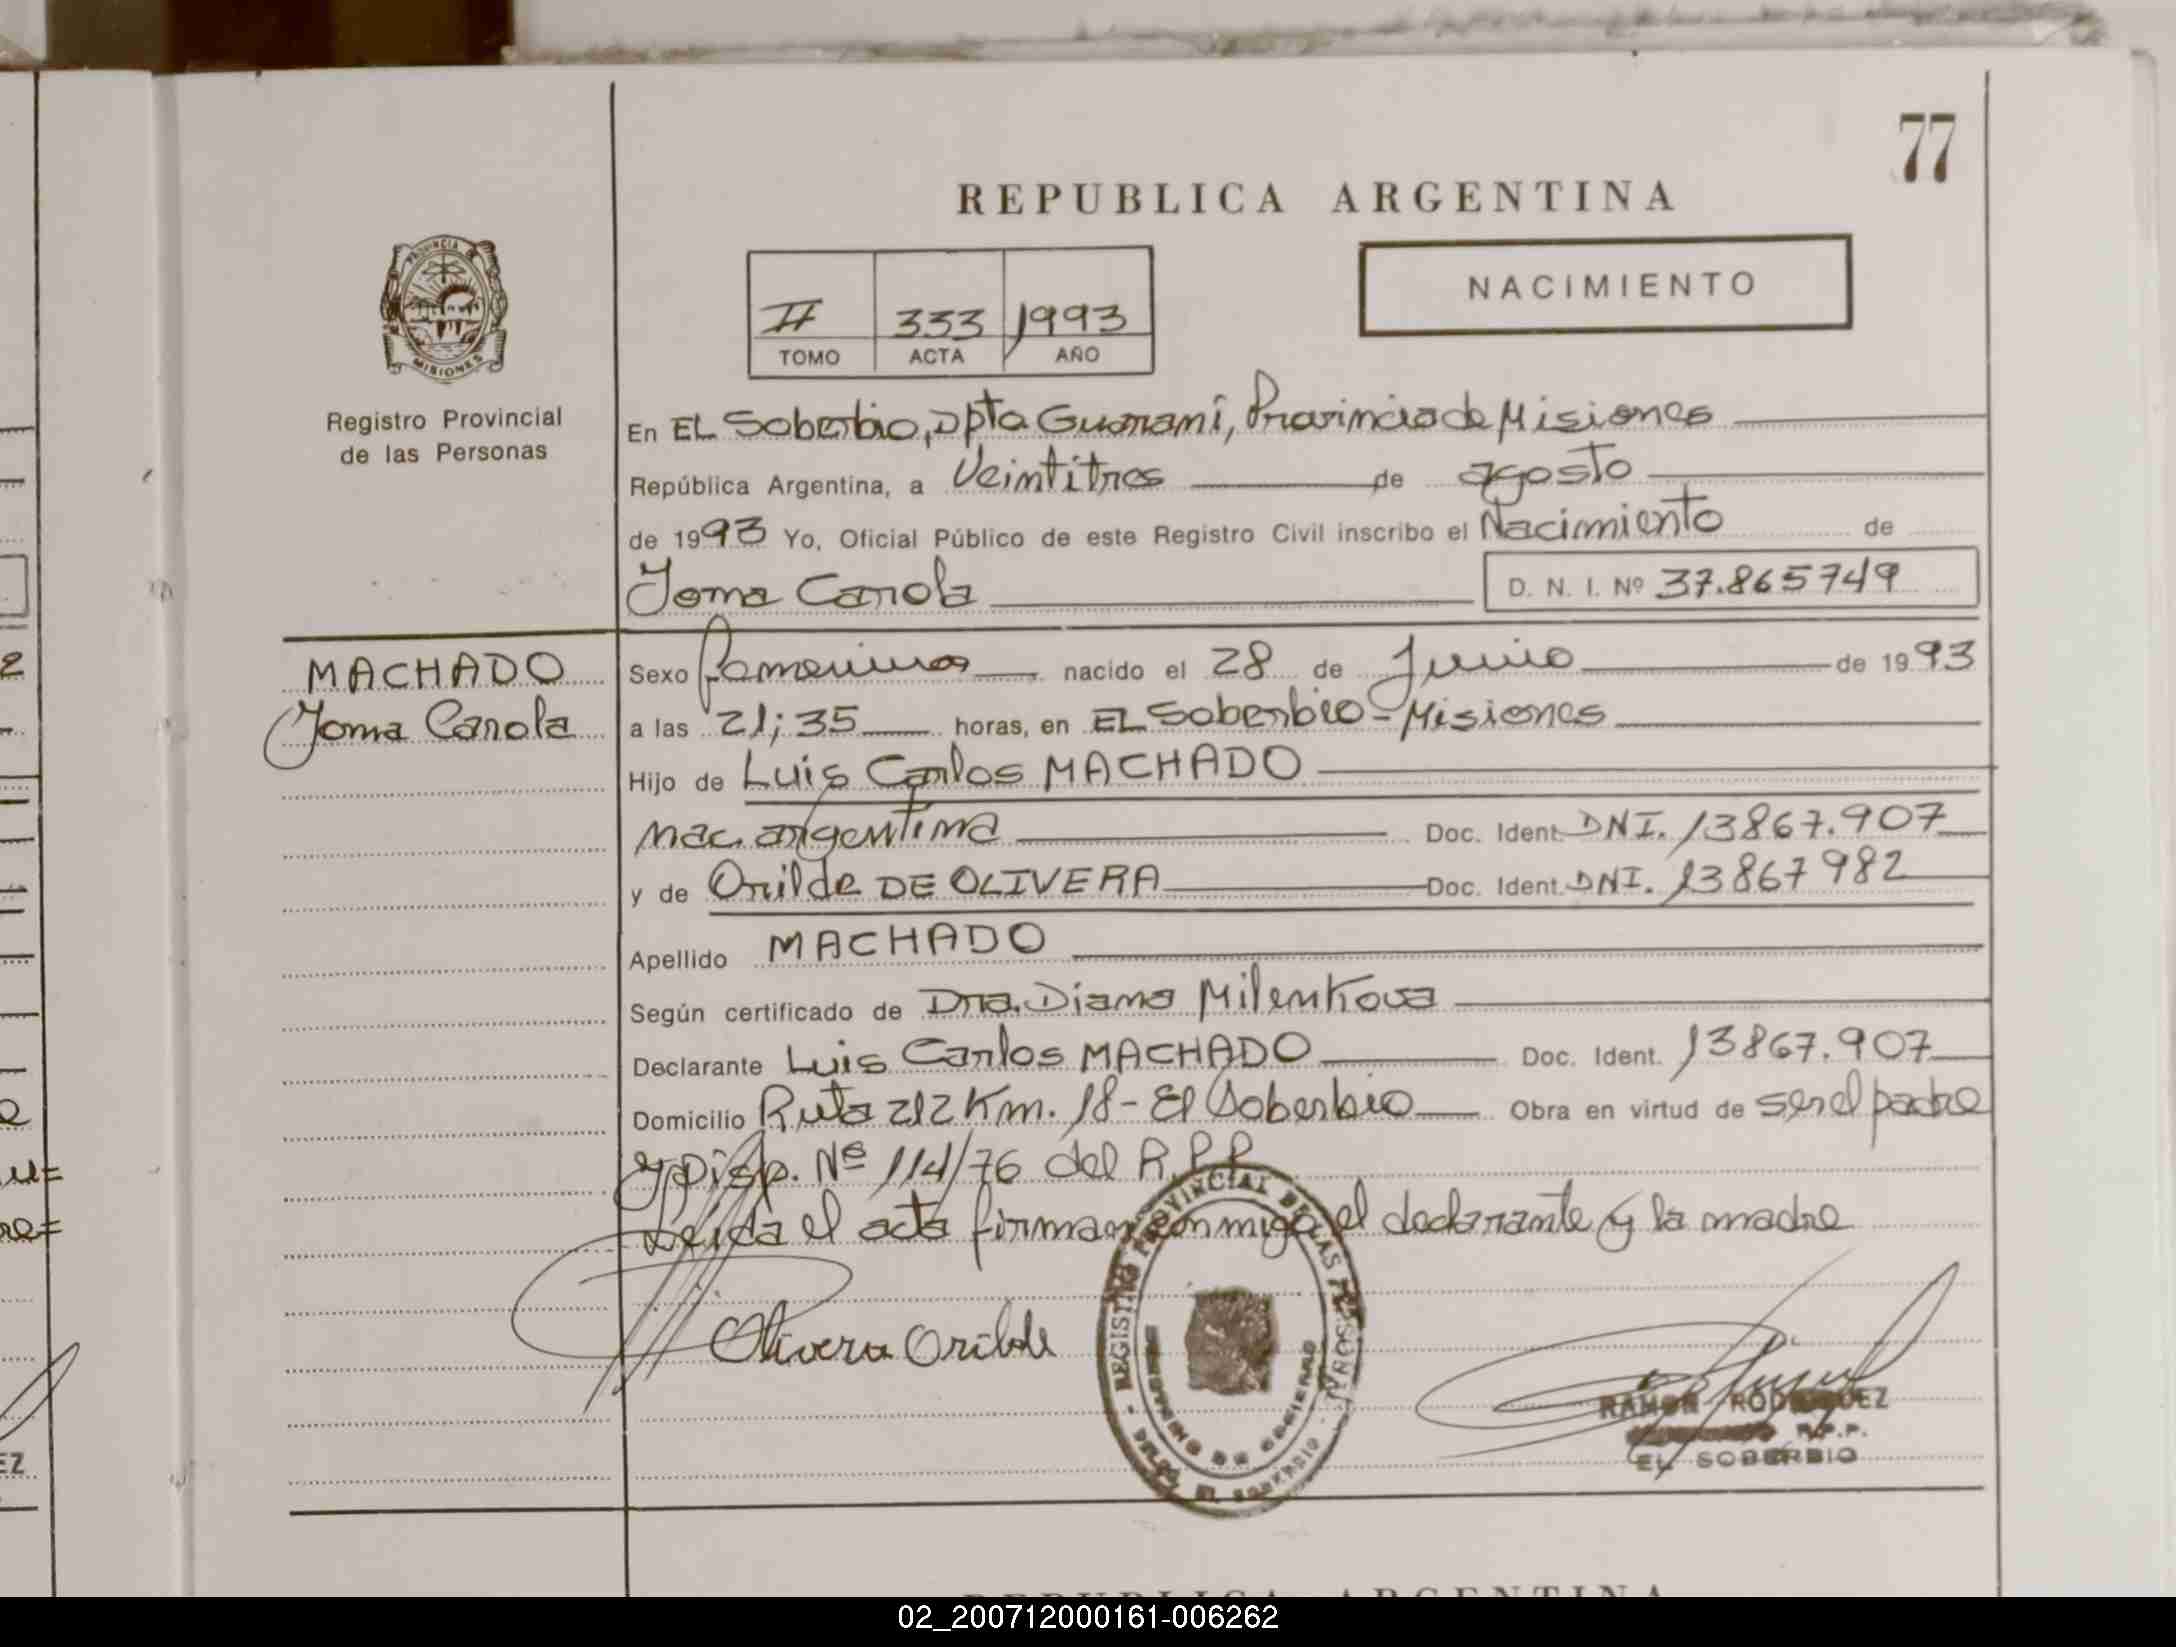 77
REPUBLICA ARGENTINA
PROVINCIA DE
MISIONES
Registro Provincial
de las Personas
II 333 1993
TOMO ACTA AÑO
NACIMIENTO
En EL Soberbio, Dpto Guarani, Provincia de Misiones
República Argentina, a Veintitres de agosto
de 1993 Yo, Oficial Público de este Registro Civil inscribo el Nacimiento de
Joma Carola D. N. I. Nº 37.865749
MACHADO
Joma Carola
Sexo femenino nacido el 28 de Junio de 1993
a las 21;35 horas, en EL Soberbio - Misiones
Hijo de Luis Carlos MACHADO
nac. argentina Doc. Ident. DNI. 13867.907
y de Orilde DE OLIVERA Doc. Ident. DNI. 13867982
Apellido MACHADO
Según certificado de Dra. Diana Milenkova
Declarante Luis Carlos MACHADO Doc. Ident. 13867.907
Domicilio Ruta 212 Km. 18 - El Soberbio Obra en virtud de ser el padre
y Disp. Nº 114/76 del R.P.P.
Leida el acta firman conmigo el declarante y la madre
Olivera Orilde
REGISTRO PROVINCIAL DE LAS PERSONAS
MINISTERIO DE GOBIERNO
DELEG. EL SOBERBIO
RAMON RODRIGUEZ
R.P.P.
EL SOBERBIO
EZ
REPUBLICA ARGENTINA
02_200712000161-006262